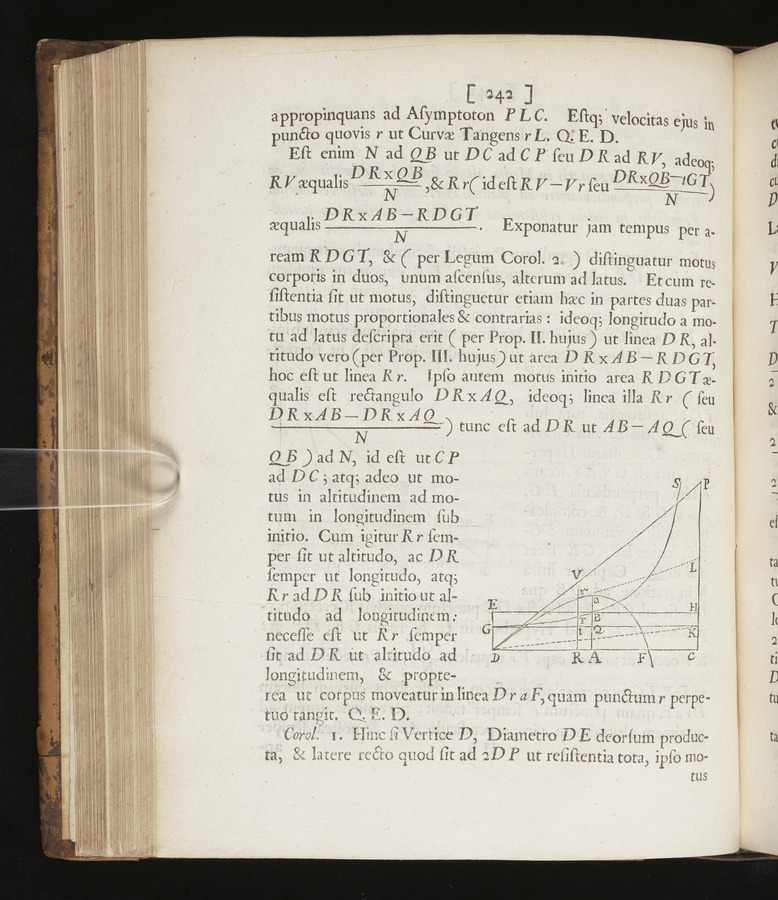 [ 242 ]
appropinquans ad Aſymptoton PLC. Eſtq; velocitas ejus in
puncto quovis r ut Curvæ Tangens rL. Q. E. D.
Eſt enim N ad QB ut DC ad CP ſeu DR ad RV, adeoq;
RV æqualis DR×QB/N, & Rr ( id eſt RV−Vr ſeu DR×QB−tGT/N )
æqualis DR×AB−RDGT/N. Exponatur jam tempus per a-
ream RDGT, & ( per Legum Corol. 2. ) diſtinguatur motus
corporis in duos, unum aſcenſus, alterum ad latus. Et cum re-
ſiſtentia ſit ut motus, diſtinguetur etiam hæc in partes duas par-
tibus motus proportionales & contrarias : ideoq; longitudo a mo-
tu ad latus deſcripta erit ( per Prop. II. hujus ) ut linea DR, al-
titudo vero (per Prop. III. hujus) ut area DR×AB−RDGT,
hoc eſt ut linea Rr. Ipſo autem motus initio area RDGT æ-
qualis eſt rectangulo DR×AQ, ideoq; linea illa Rr ( ſeu
DR×AB−DR×AQ/N ) tunc eſt ad DR ut AB−AQ ( ſeu
QB ) ad N, id eſt ut CP
ad DC ; atq; adeo ut mo-
tus in altitudinem ad mo-
tum in longitudinem ſub
initio. Cum igitur Rr ſem-
per ſit ut altitudo, ac DR
ſemper ut longitudo, atq;
Rr ad DR ſub initio ut al-
titudo ad longitudinem :
neceſſe eſt ut Rr ſemper
ſit ad DR ut altitudo ad
longitudinem, & propte-
rea ut corpus moveatur in linea DraF, quam punctum r perpe-
tuo tangit. Q. E. D.
S P
L
V
r a
E r B H
G t Q K
D R A F C
Corol. 1. Hinc ſi Vertice D, Diametro DE deorſum produc-
ta, & latere recto quod ſit ad 2DP ut reſiſtentia tota, ipſo mo-
tus